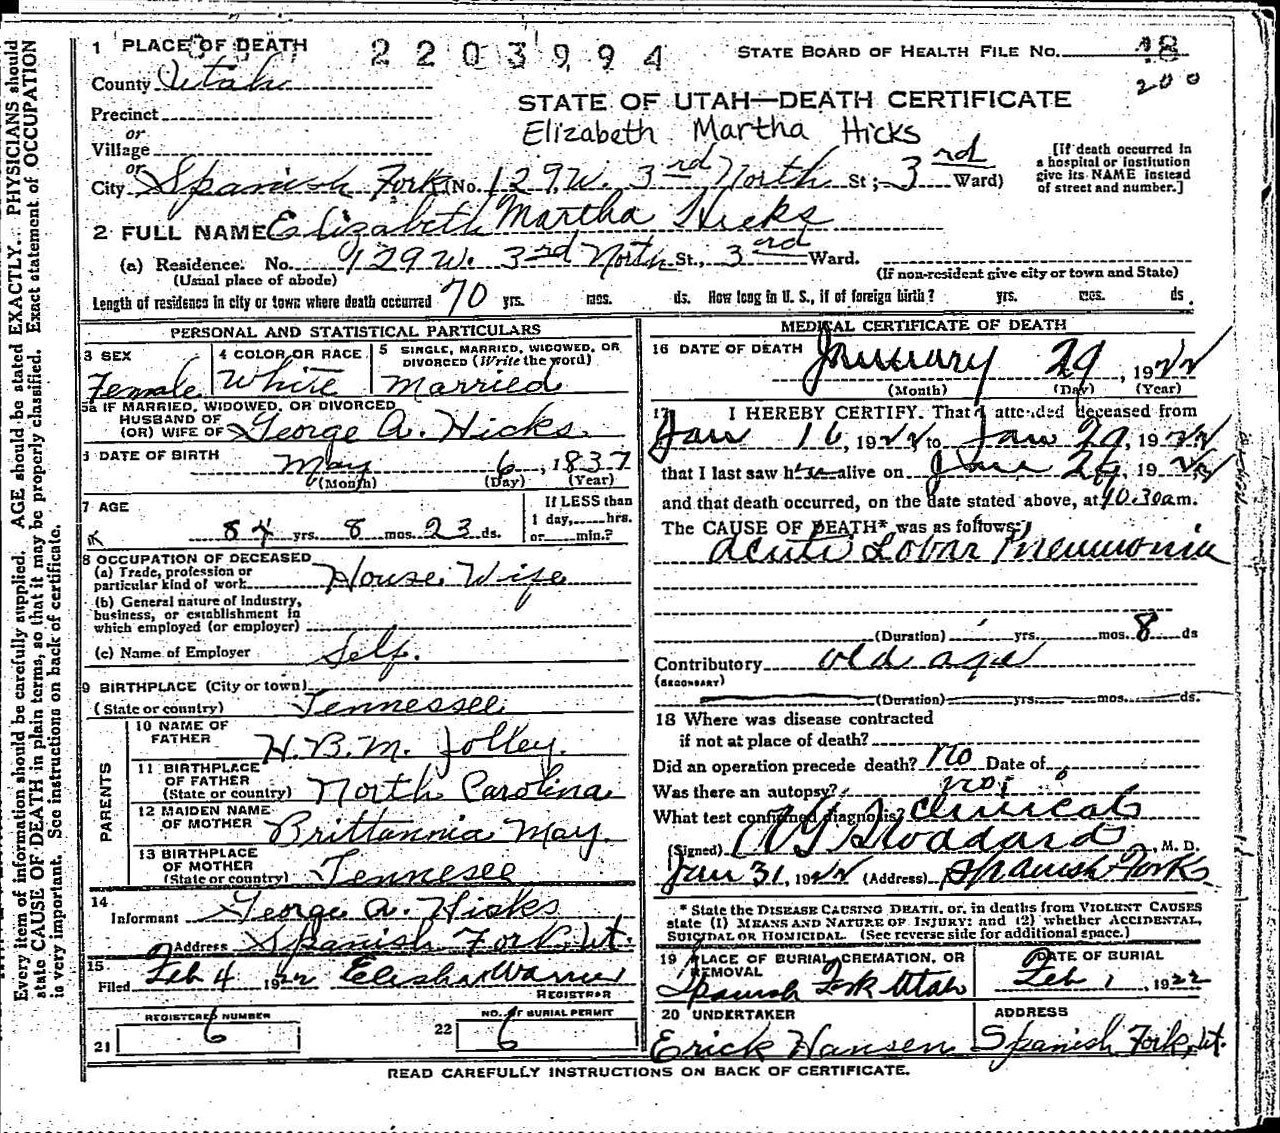 1 PLACE OF DEATH 2203994 STATE BOARD OF HEALTH FILE NO. 18
200
County Utah
STATE OF UTAH—DEATH CERTIFICATE
Precinct
Elizabeth Martha Hicks
or
Village
or
City Spanish Fork (No. 129 W. 3rd North St; 3rd Ward)
[If death occurred in
a hospital or institution
give its NAME instead
of street and number.]
2 FULL NAME Elizabeth Martha Hicks
(a) Residence. No. 129 W. 3rd North St., 3rd Ward.
(Usual place of abode) (If non-resident give city or town and State)
Length of residence in city or town where death occurred 70 yrs. mos. ds. How long in U. S., if of foreign birth? yrs. mos. ds.
PERSONAL AND STATISTICAL PARTICULARS
3 SEX
Female
4 COLOR OR RACE
White
5 SINGLE, MARRIED, WIDOWED, OR
DIVORCED (Write the word)
Married
5a IF MARRIED, WIDOWED, OR DIVORCED
HUSBAND OF
(OR) WIFE OF George A. Hicks
6 DATE OF BIRTH May 6, 1837
(Month) (Day) (Year)
7 AGE
84 yrs. 8 mos. 23 ds.
If LESS than
1 day, hrs.
or min.?
8 OCCUPATION OF DECEASED
(a) Trade, profession or
particular kind of work House Wife
(b) General nature of industry,
business, or establishment in
which employed (or employer)
(c) Name of Employer Self.
9 BIRTHPLACE (City or town)
(State or country) Tennessee
PARENTS
10 NAME OF
FATHER H. B. M. Jolley.
11 BIRTHPLACE
OF FATHER
(State or country) North Carolina
12 MAIDEN NAME
OF MOTHER Brittannia May.
13 BIRTHPLACE
OF MOTHER
(State or country) Tennesee
14
Informant George A. Hicks
Address Spanish Fork, Ut.
15
Filed Feb 4 1922 Elisha Warner
REGISTRAR
REGISTERED NUMBER
21 6
NO. OF BURIAL PERMIT
22 6
MEDICAL CERTIFICATE OF DEATH
16 DATE OF DEATH January 29, 1922
(Month) (Day) (Year)
17 I HEREBY CERTIFY. That I attended deceased from
Jan 16, 1922 to Jan 29, 1922
that I last saw her alive on Jan 29, 1922
and that death occurred, on the date stated above, at 10.30 a m.
The CAUSE OF DEATH* was as follows:
Acute Lobar Pneumonia
(Duration) yrs. mos. 8 ds
Contributory old age
(SECONDARY)
(Duration) yrs. mos. ds.
18 Where was disease contracted
if not at place of death?
Did an operation precede death? no Date of
Was there an autopsy? no
What test confirmed diagnosis? Clinical
(Signed) Stoddard, M. D.
Jan 31, 1922 (Address) Spanish Fork
* State the DISEASE CAUSING DEATH, or, in deaths from VIOLENT CAUSES
state (1) MEANS AND NATURE OF INJURY; and (2) whether ACCIDENTAL,
SUICIDAL OR HOMICIDAL. (See reverse side for additional space.)
19 PLACE OF BURIAL, CREMATION, OR
REMOVAL
Spanish Fork Utah
DATE OF BURIAL
Feb 1, 1922
20 UNDERTAKER
Erick Hansen
ADDRESS
Spanish Fork, Ut.
READ CAREFULLY INSTRUCTIONS ON BACK OF CERTIFICATE.
Every item of information should be carefully supplied. AGE should be stated EXACTLY. PHYSICIANS should
state CAUSE OF DEATH in plain terms, so that it may be properly classified. Exact statement of OCCUPATION
is very important. See instructions on back of certificate.